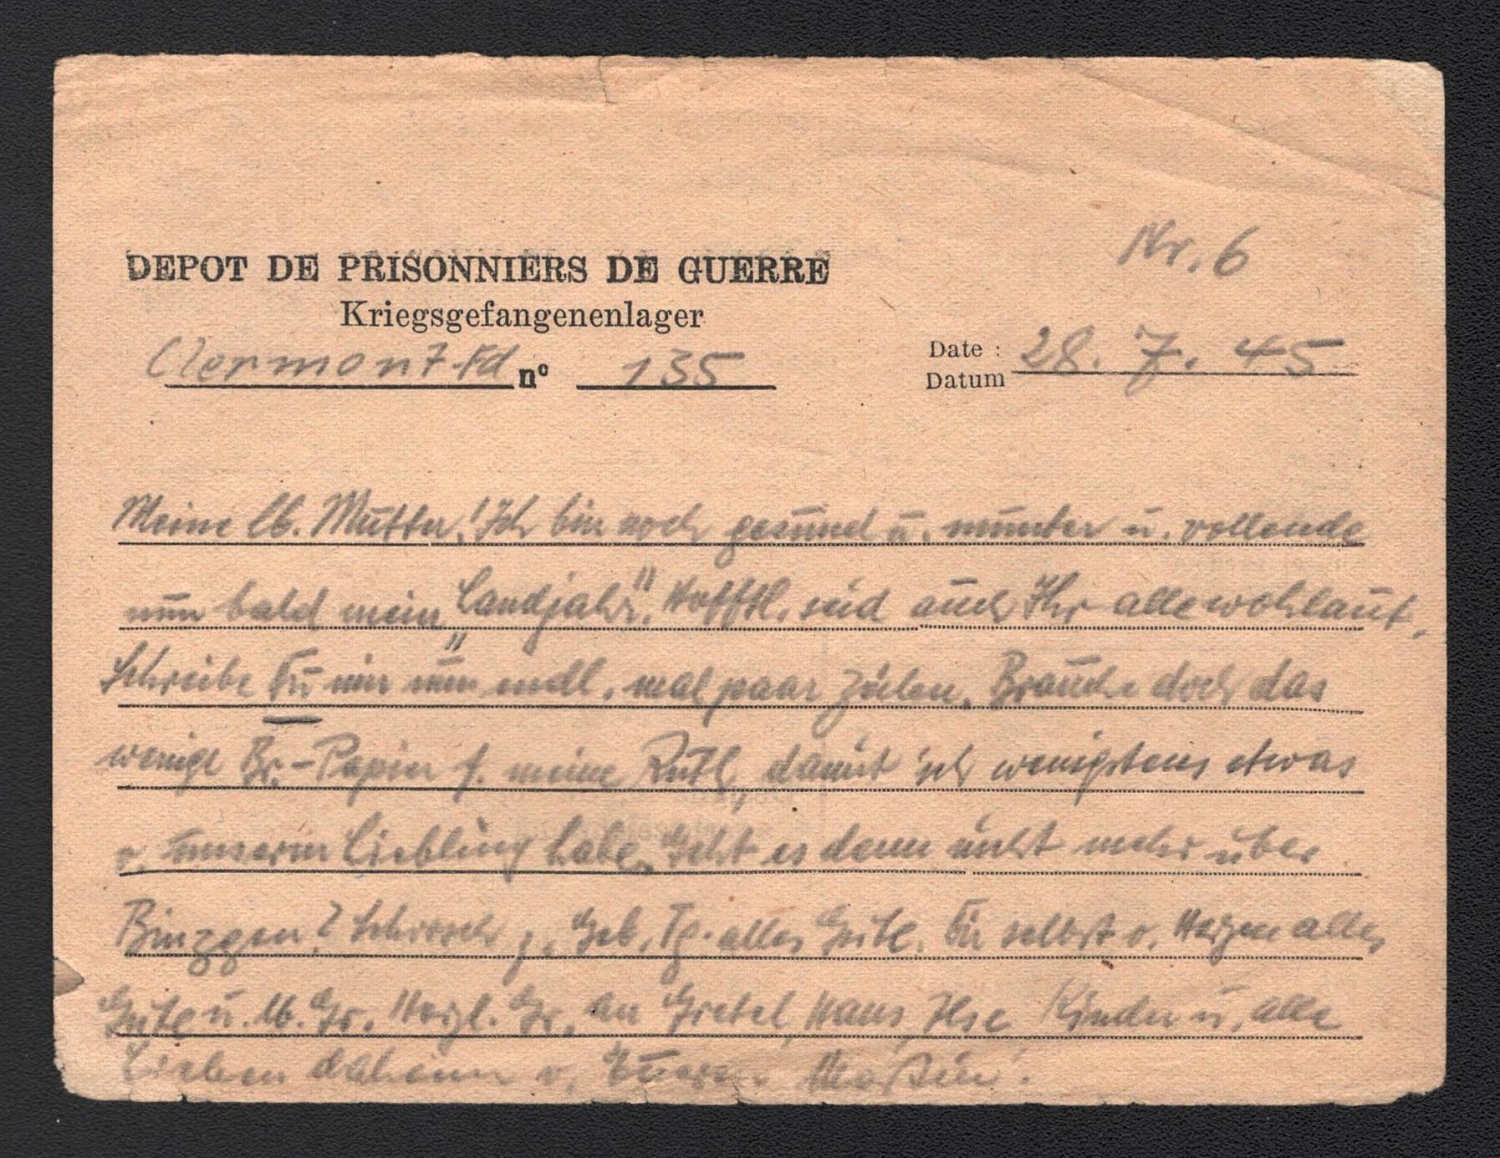 Nr. 6
DEPOT DE PRISONNIERS DE GUERRE
Kriegsgefangenenlager
Clermont-Fd nº 135
Date : 28. 7. 45
Datum
Meine lb. Mutter! Ich bin noch gesund u. munter u. vollende
nun bald mein "Landjahr". Hofftl. seid auch Ihr alle wohlauf.
Schreibe Du mir nun endl. mal paar Zeilen. Brauche doch das
wenige Br.-Papier f. meine Ruth, damit ich wenigstens etwas
v. unserm Liebling habe. Geht es denn nicht mehr über
Binzgen? z. Geb. Tg. alles Gute. Dir selbst v. Herzen alles
Gute u. lb. Gr. Herzl. Gr. an Gretel, Hans, Ilse Kinder u. alle
Lieben daheim v. Eurem